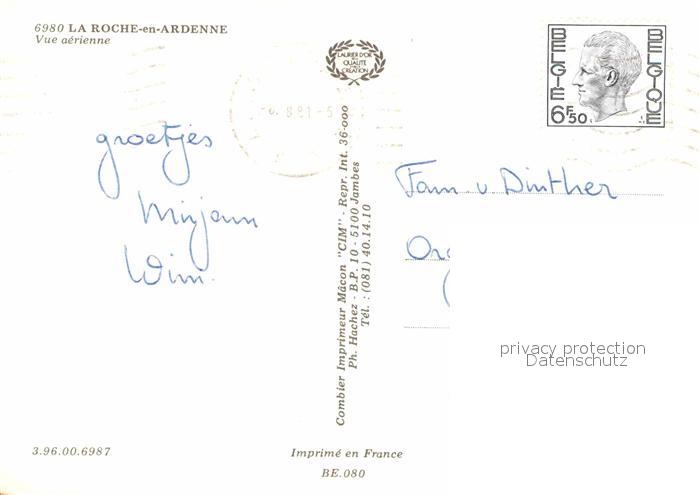 6980 LA ROCHE-en-ARDENNE
Vue aérienne
LAURIER D'OR
DE LA
QUALITÉ
CRÉATION
BELGIE
BELGIQUE
6F50
8.81-5
groetjes
Mirjam
Wim.
Combier Imprimeur Mâcon "CIM" - Repr. Int. 36-000
Ph. Hachez - B.P. 10 - 5100 Jambes
Tél. : (081) 40.14.10
Fam v Dinther
privacy protection
Datenschutz
3.96.00.6987
Imprimé en France
BE.080